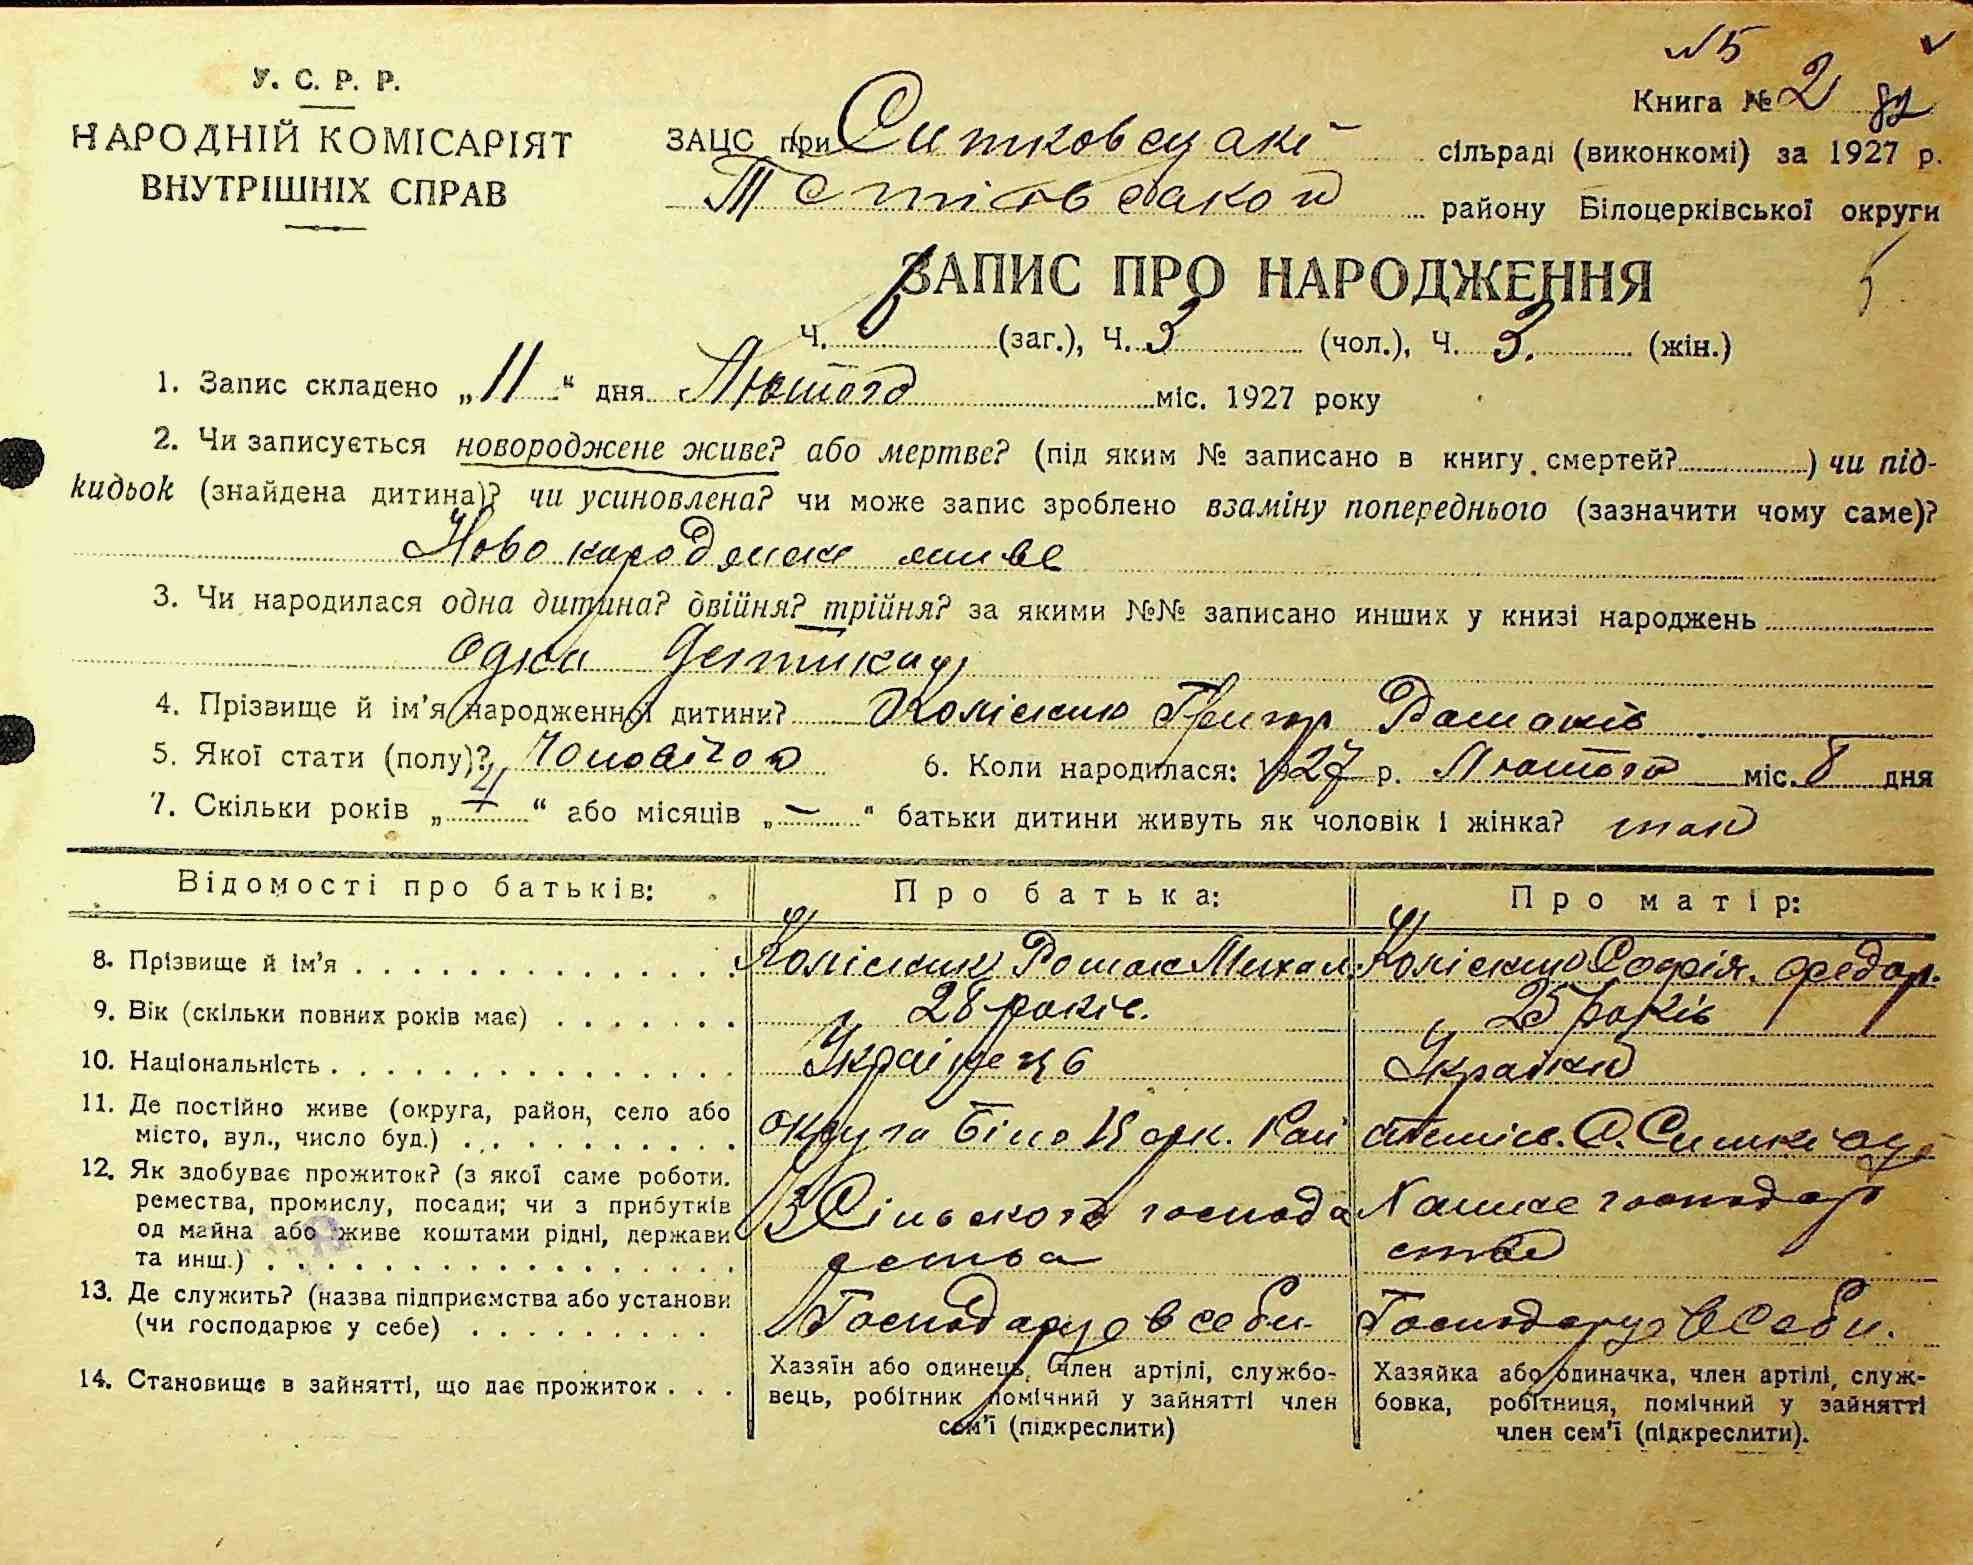 №5
У. С. Р. Р.
НАРОДНІЙ КОМІСАРІЯТ
ВНУТРІШНІХ СПРАВ
Книга № 2 82
ЗАЦС при сільраді (виконкомі) за 1927 р.
району Білоцерківської округи
ЗАПИС ПРО НАРОДЖЕННЯ
5
Ч. 6 (заг.), Ч. 3 (чол.), Ч. 3. (жін.)
1. Запис складено „11“ дня Лютого міс. 1927 року
2. Чи записується новороджене живе? або мертве? (під яким № записано в книгу смертей?) чи під-
кидьок (знайдена дитина)? чи усиновлена? чи може запис зроблено взаміну попереднього (зазначити чому саме)?
живе
3. Чи народилася одна дитина? двійня? трійня? за якими №№ записано инших у книзі народжень
одна
4. Прізвище й ім'я народженної дитини? Колісник Романів
5. Якої стати (полу)? 6. Коли народилася: 1927 р. Лютого міс. 8 дня
7. Скільки років „4“ або місяців „—“ батьки дитини живуть як чоловік і жінка? так
Відомості про батьків: Про батька: Про матір:
8. Прізвище й ім'я Колісник Роман Михал. Колісник Софія Федор.
9. Вік (скільки повних років має) 28 років. 25 років
10. Національність Українець Украінка
11. Де постійно живе (округа, район, село або
місто, вул., число буд.) округа Біло Церк. Рай Тетіїв. С.
12. Як здобуває прожиток? (з якої саме роботи.
ремества, промислу, посади; чи з прибутків
од майна або живе коштами рідні, держави
та инш.) З Сільского господа
рства
Хатне господар
ство
13. Де служить? (назва підприємства або установи
(чи господарює у себе) Господарує в себи Господарує в себи.
14. Становище в зайнятті, що дає прожиток
Хазяїн або одинець, член артілі, службо-
вець, робітник помічний у зайнятті член
сем'ї (підкреслити)
Хазяйка або одиначка, член артілі, служ-
бовка, робітниця, помічний у зайнятті
член сем'ї (підкреслити).